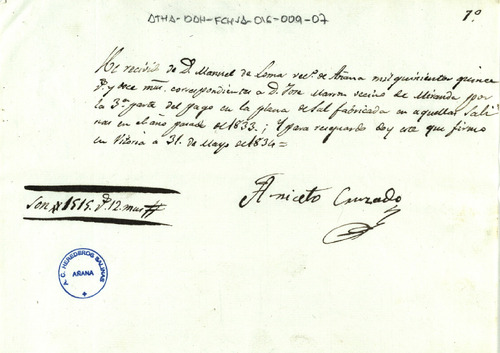 ATHA-DOH-FCHVA-016-009-07
7º
He recivido de D. Manuel de Loma vecº. de Añana mil quinientos quince
rs. y doce mrs. correspondientes a D. Jose Marron vecino de Miranda por
la 3ª parte del pago en la plena de Sal fabricada en aquellas Sali
nas en el año pasado de 1833.; y para resguardo doy este que firmo
en Vitoria a 31. de Mayo de 1834=
Aniceto Cruzado
Son # 1515. rs. 12 mrs #
A.C. HEREDEROS SALINAS
AÑANA